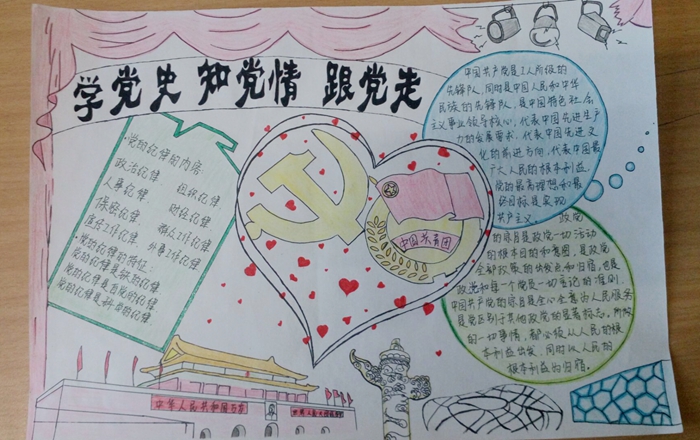 学党史 知党情 跟党走
·党的纪律的内容:
政治纪律 组织纪律
人事纪律 财经纪律
保密纪律 群众工作纪律
宣传工作纪律 外事工作纪律
·党的纪律的特征:
党的纪律是铁的纪律
党的纪律是自觉的纪律
党的纪律是
的纪律
中国共青团
中国共产党是工人阶级的
先锋队,同时是中国人民和中华
民族的先锋队,是中国特色社会
主义事业领导核心,代表中国先进生产
力的发展要求,代表中国先进文
化的前进方向,代表中国最
广大人民的根本利益
党的最高理想和最
终目标是实现
共产主义
政党
的宗旨是政党一切活动
的根本目的和意图,是政党
全部政策的出发点和归宿,也是
政党和每一个党员一切言论的准则
中国共产党的宗旨是全心全意为人民服务
是党区别于其他政党的显著标志。
的一切事情,都必须从人民的根
本利益出发,同时以人民的
根本利益为归宿。
中华人民共和国万岁